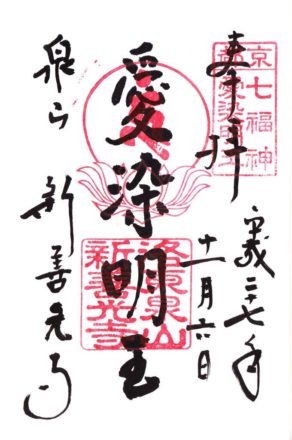 京七福神
愛染明王
奉拝
平成二十七年
十一月六日
愛染明王
洛東泉山
新善光寺
泉山 新善光寺